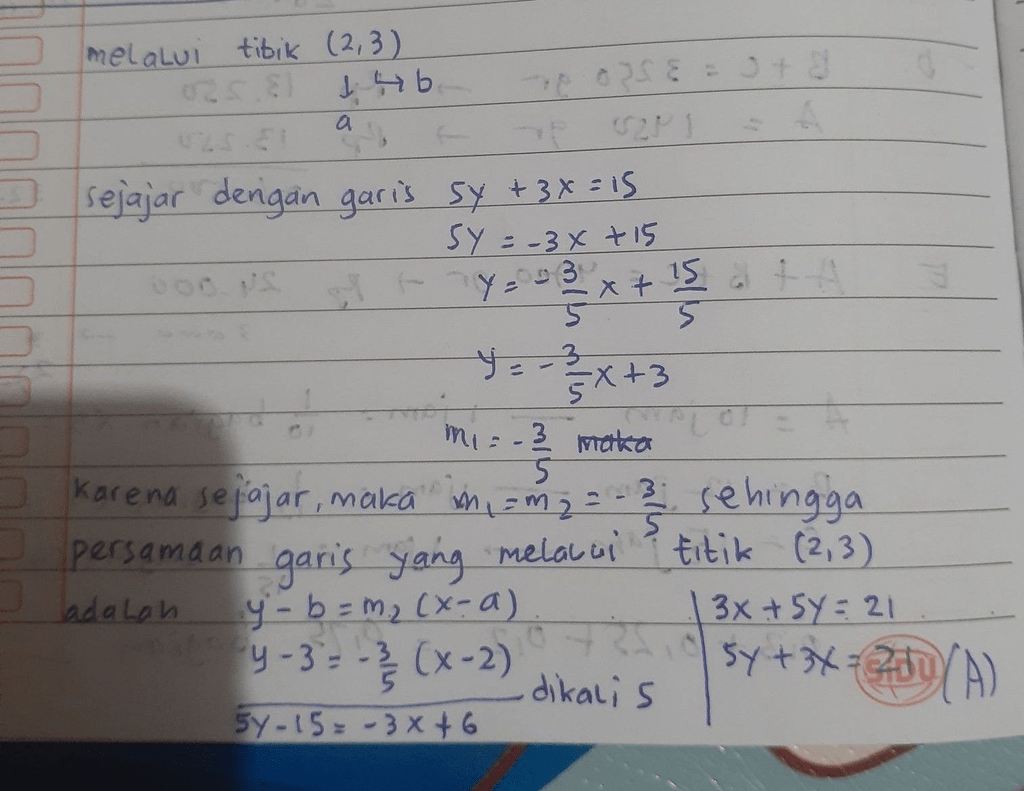 melalui titik (2,3)
↓ ↳ b
a
sejajar dengan garis 5y + 3x = 15
5y = -3x + 15
y = -3/5 x + 15/5
y = -3/5 x + 3
m1 = -3/5 maka
Karena sejajar, maka m1 = m2 = -3/5 sehingga
persamaan garis yang melalui titik (2,3)
adalah y - b = m2 (x-a)
y - 3 = -3/5 (x-2)
dikali 5
5y - 15 = -3x + 6
3x + 5y = 21
5y + 3x = 21 (A)
SIDU